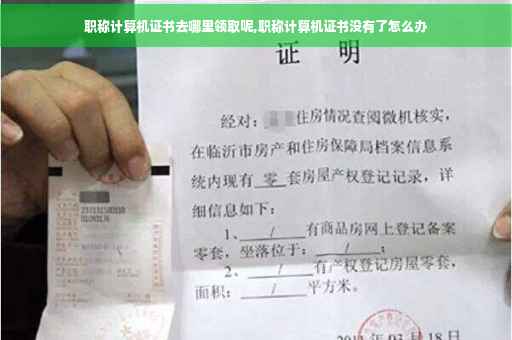 职称计算机证书去哪里领取呢,职称计算机证书没有了怎么办
证 明
经对: 住房情况查阅微机核实,
在临沂市房产和住房保障局档案信息系
统内现有 零 套房屋产权登记记录, 详
细信息如下:
1、 / 有商品房网上登记备案
零套, 坐落位于: / ;
2、 / 有产权登记房屋零套,
面积: / 平方米。
03月18日